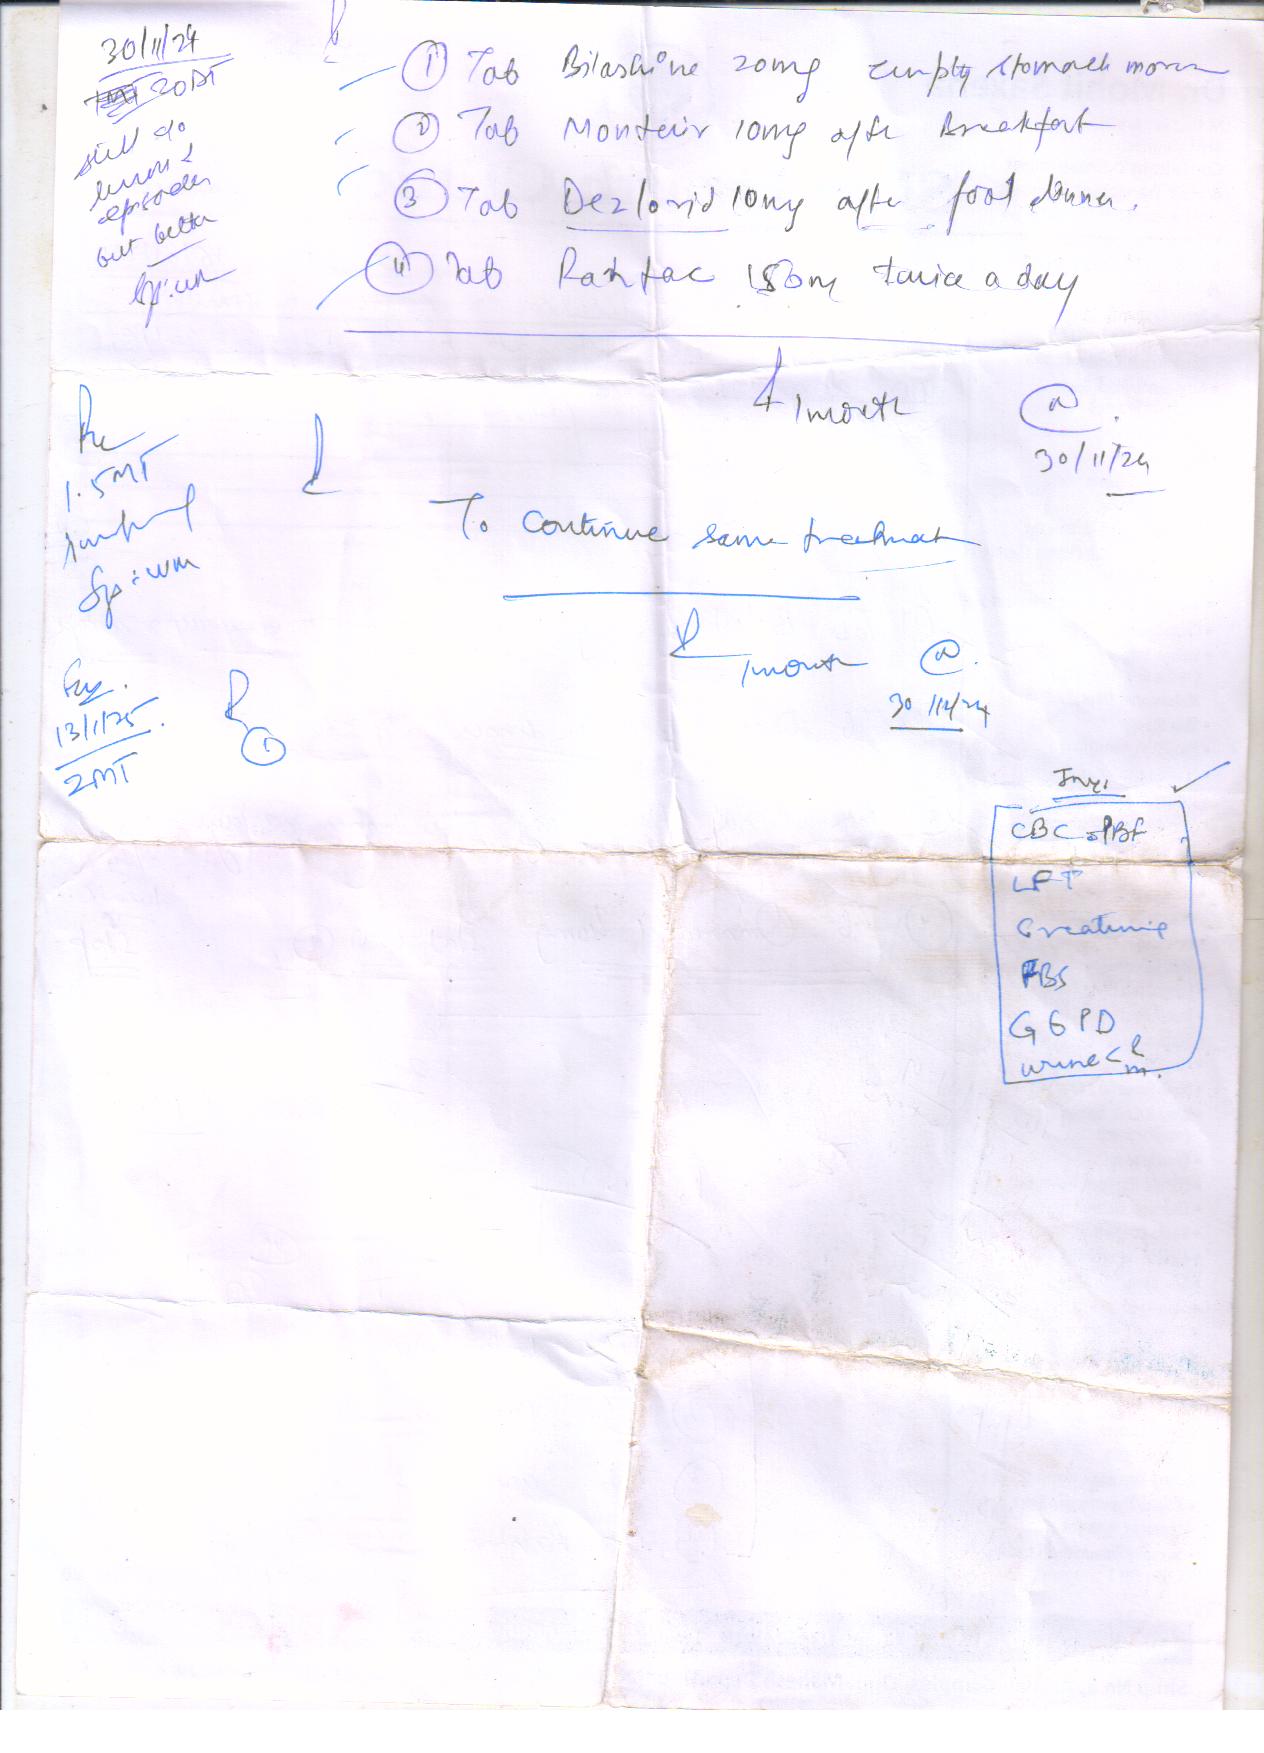 30/11/24
20DT
still do
lesion &
episodes
but better
① Tab Bilashine 20mg empty stomach morn
② Tab Montair 10mg after Breakfast
③ Tab Dezlorid 10mg after food dinner.
④ Tab Rantac 150m twice a day
1 month
30/11/24
1.5MT
To continue same treatment
1 month
30/12/24
13/1/25
2MT
①
Inv.
CBC PBF
LFT
Creatinine
FBS
G6PD
urine R
m.